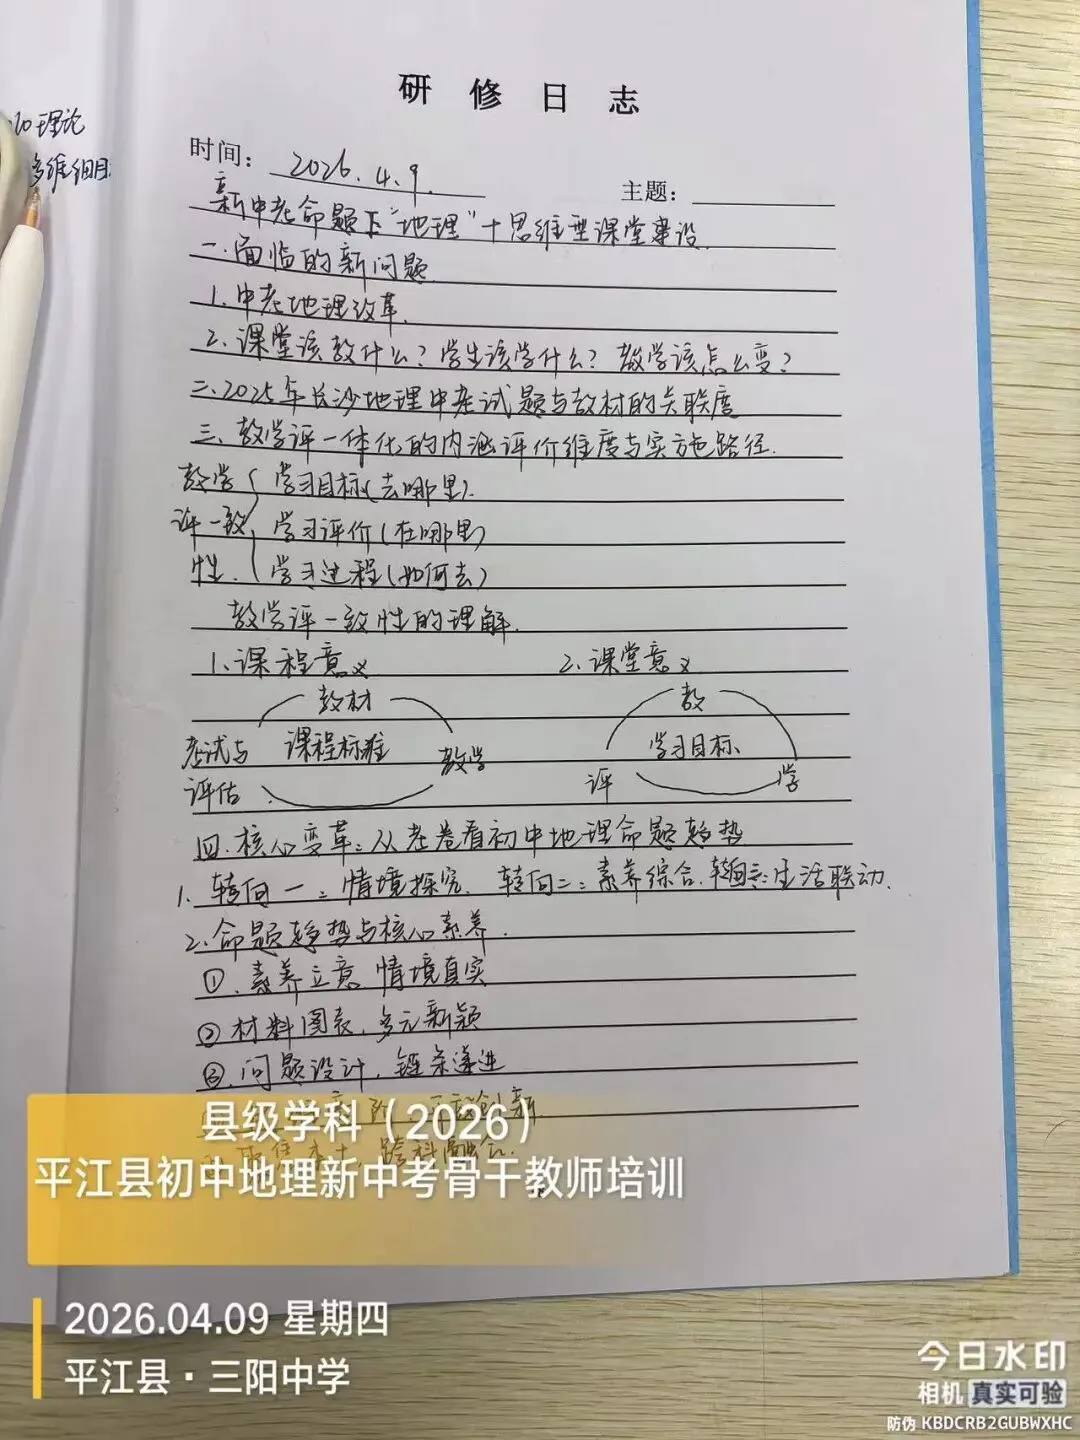 研 修 日 志
理论
多维细目
时间：2026.4.9.
主题：
新中考命题下“地理”+思维型课堂建设.
一.面临的新问题.
1.中考地理改革.
2.课堂该教什么？学生该学什么？教学该怎么变？
二.2025年长沙地理中考试题与教材的关联度
三、教学评一体化的内涵评价维度与实施路径.
教学 { 学习目标(去哪里).
评一致 学习评价(在哪里)
性. 学习过程(如何去)
教学评一致性的理解.
1.课程意义 2.课堂意义
教材 教
考试与 课程标准 教学 学习目标.
评估. 评 学
四.核心变革:从考卷看初中地理命题趋势
1.转向一:情境探究. 转向二:素养综合.转向三:生活联动.
2.命题趋势与核心素养.
①.素养立意 情境真实
②材料图表.多元新颖
③.问题设计，链条递进
创新.
跨科融合.
县级学科（2026）
平江县初中地理新中考骨干教师培训
2026.04.09 星期四
平江县·三阳中学
今日水印
相机 真实可验
防伪 KBDCRB2GUBWXHC